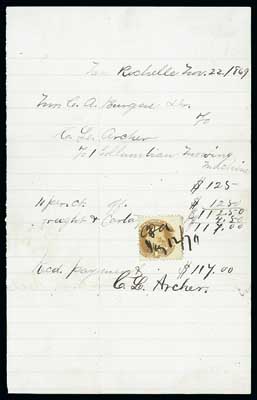 New Rochelle Nov. 22/1869
C. A. Burgess Dr.
To
C. L. Archer
To 1 Columbian Mowing
Machine
$ 125
10 per ct off $ 12.50
$ 112.50
freight & Cartage 4.50
117.00
Recd payment $ 117.00
C. L. Archer.
CLA
/70